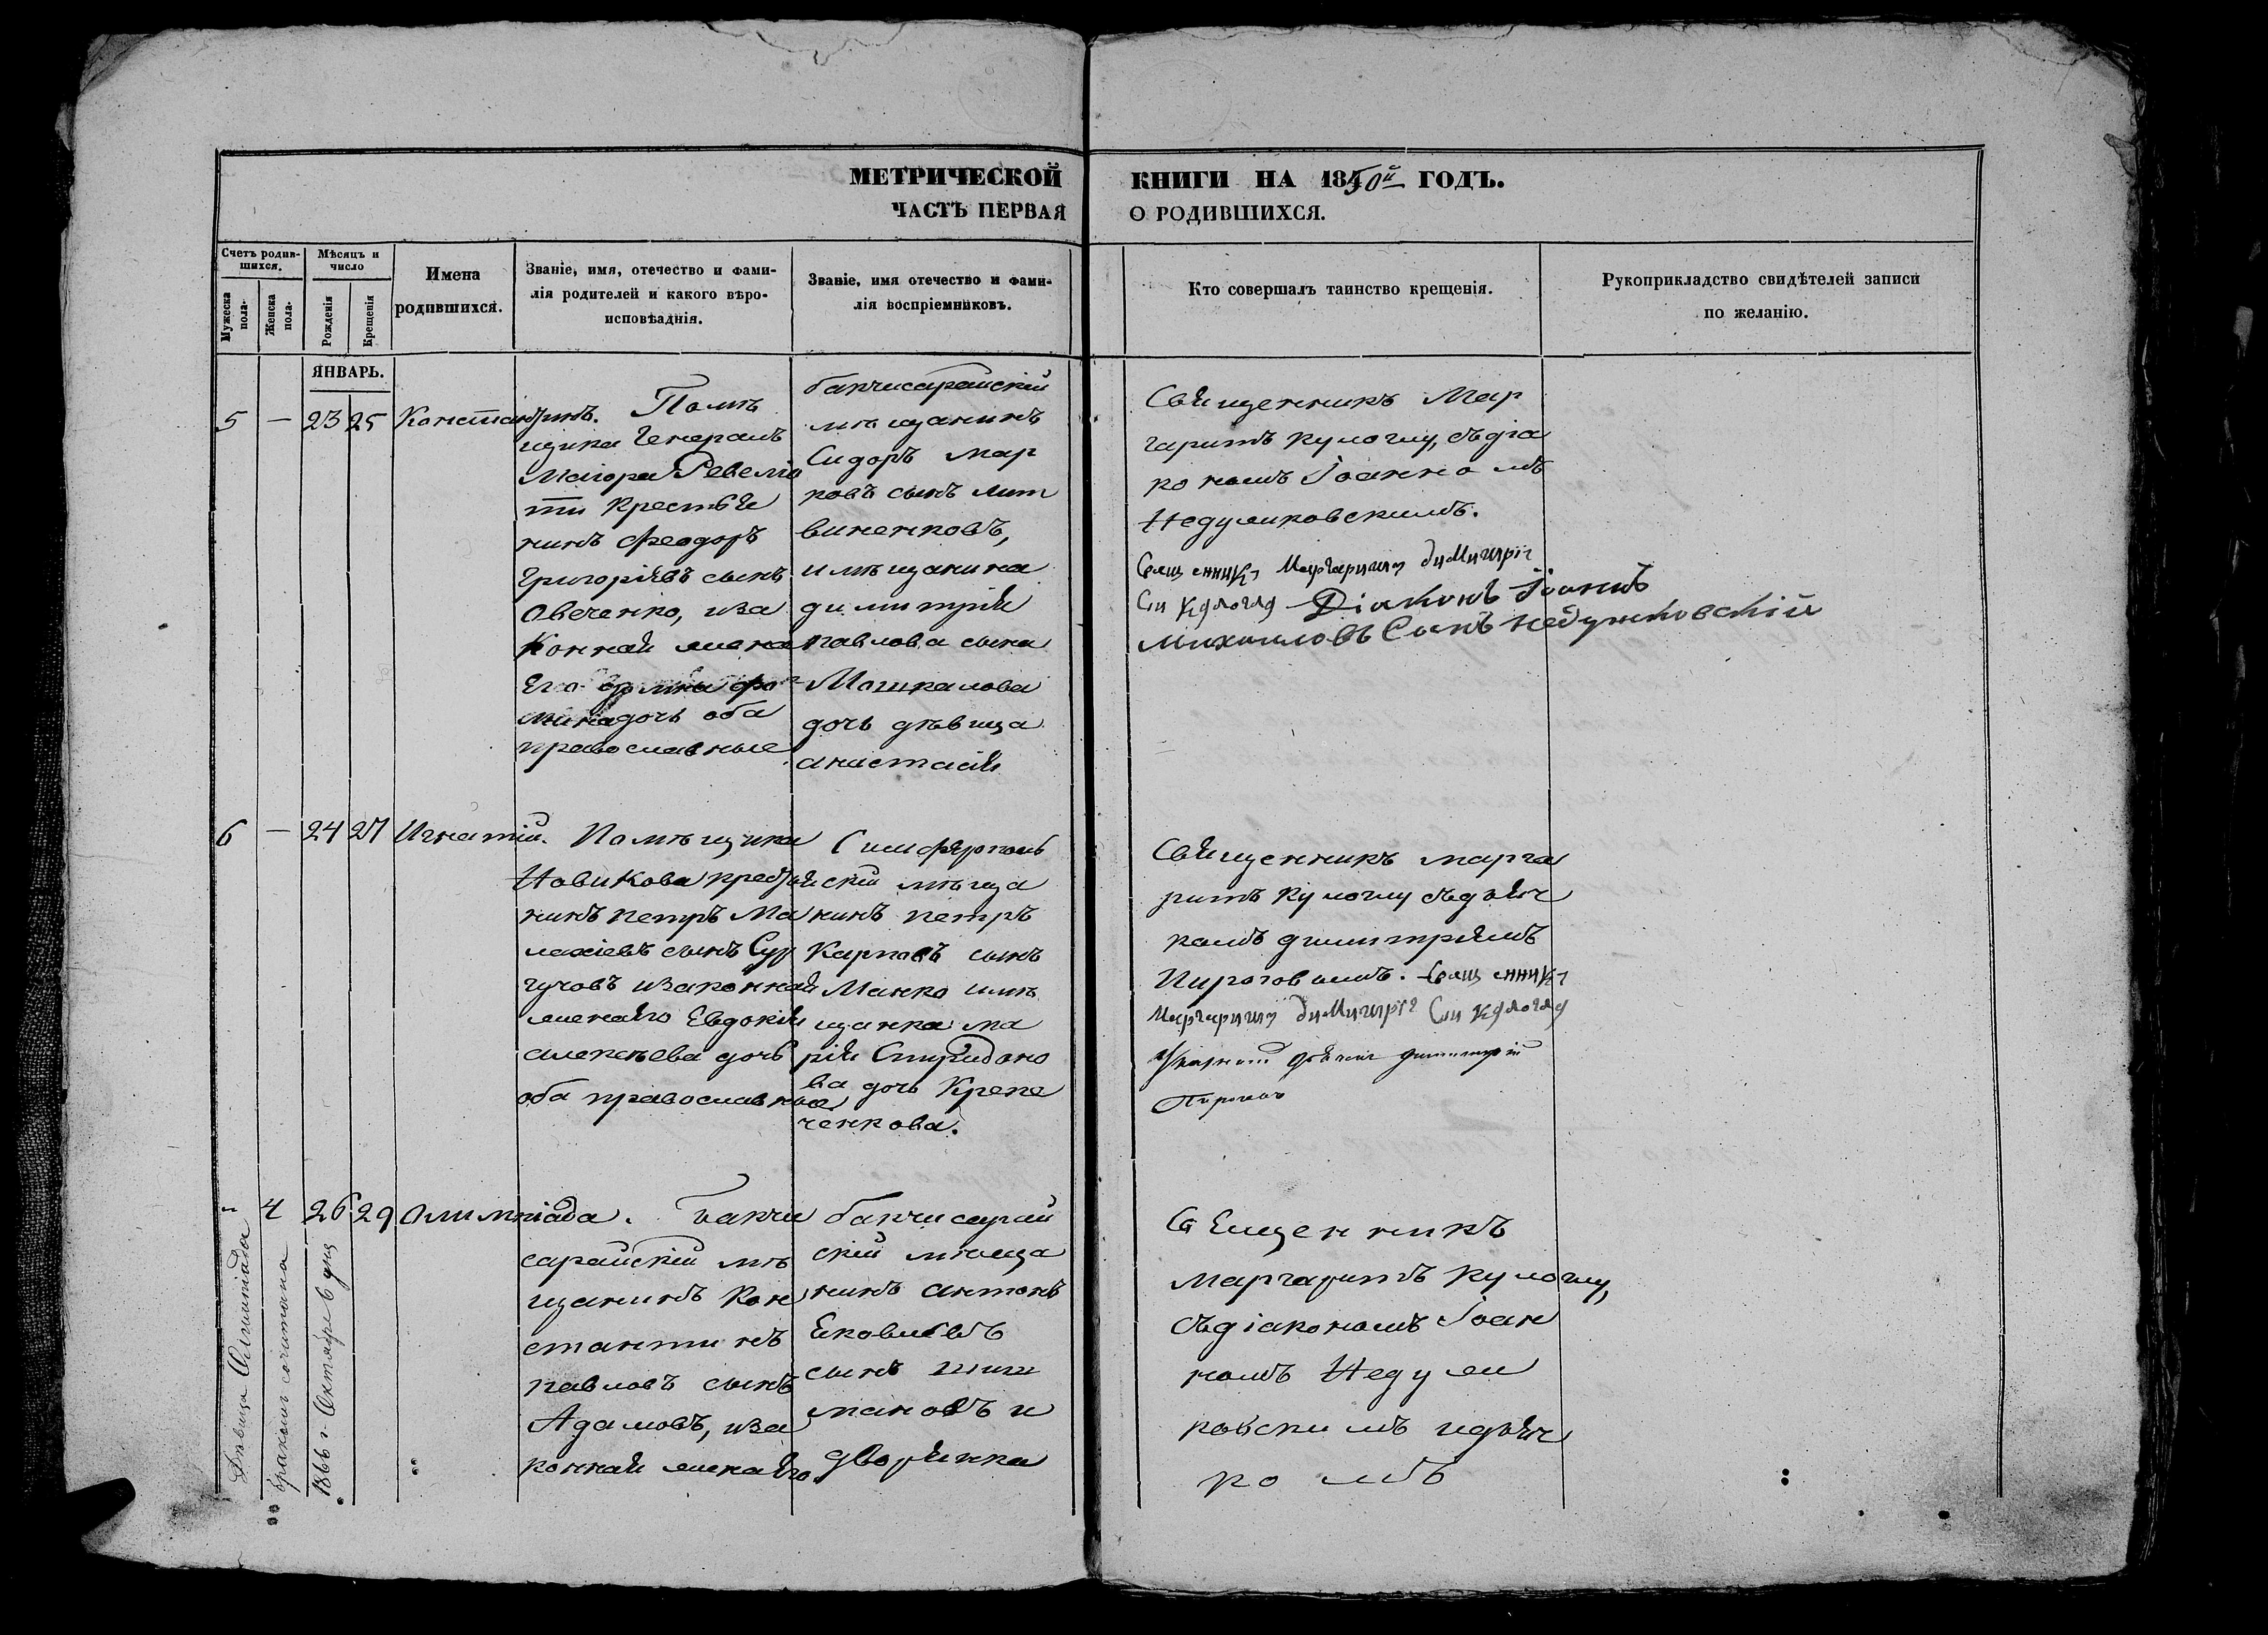 МЕТРИЧЕСКОЙ КНИГИ НА 1850й ГОДЪ.
ЧАСТЬ ПЕРВАЯ О РОДИВШИХСЯ.
Счетъ родив-
шихся.
Мужеска
пола.
Женска
пола.
Мѣсяцъ и
число
Рожденія
Крещенія
Имена
родившихся.
Званіе, имя, отечество и фами-
лія родителей и какого вѣро-
исповѣданія.
Званіе, имя отечество и фами-
лія воспріемниковъ.
Кто совершалъ таинство крещенія.
Рукоприкладство свидѣтелей записи
по желанію.
ЯНВАРЬ.
5 — 23 25 Константинъ.
Помѣ
щика Генералъ
Маіора Ревеліо
ти крестья
нинъ Феодоръ
Григорьевъ сынъ
Овченко, иза
конная жена
Его
дочь оба
православные
бакчисарайскій
мѣщанинъ
Сидоръ Мар
ковъ сынъ Лит
виненковъ,
и мѣщанина
димитрія
павлова сына
Мошкалова
дочь дѣвица
анастасія
Священникъ Мар
гаритъ Кулоглу, съдіа
кономъ Іоанномъ
Недумковскимъ.
Сващенникъ Маргаритъ
Діаконъ Іоаннъ
Михаиловъ Сынъ
6 — 24 27 Игнатій.
Помѣщика
Новикова крестья
нинъ петръ Ма
лахіевъ сынъ
изаконная
жена Его Евдокія
алексѣева дочь
оба православные
Симферополь
скій мѣща
нинъ петръ
Карповъ сынъ
Манко и мѣ
щанка ма
рія Спиридоно
ва дочь Крепе
ченкова.
Священникъ марга
ритъ Кулоглу съдьяч
комъ димитріемъ
Пироговымъ. Сващенникъ
Маргаритъ
дьячекъ димитрій
Пироговъ
„ 4 26 29 Олимпіада.
Бакчи
сарайскій мѣ
щанинъ Кон
стантинъ
павловъ сынъ
Адамовъ, иза
конная жена Его
бакчисарай
скій мѣща
нинъ антонъ
Яковлевъ
сынъ Шиш
мановъ и
дворянка
Священникъ
Маргаритъ Кулоглу,
съдіакономъ Іоан
номъ Недум
ковскимъ идьяч
комъ
Дѣвица Олимпіада
бракомъ сочитана
1866 г. Октября 6 дня